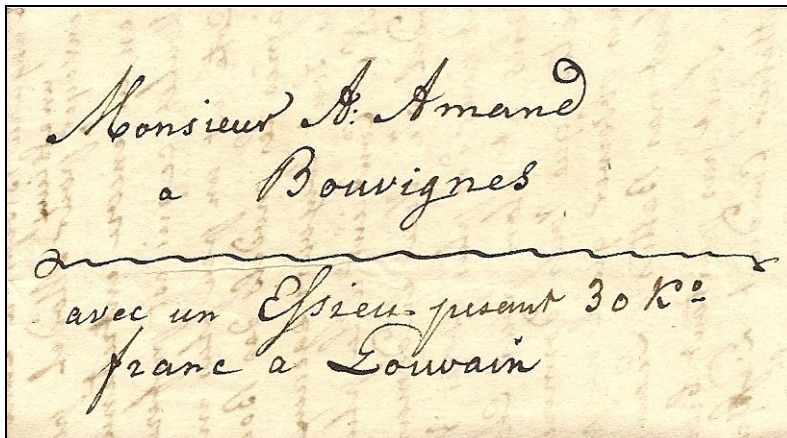 Monsieur A: Amand
a Bouvignes
avec un Essieu pesant 30 Ko
franc a Louvain